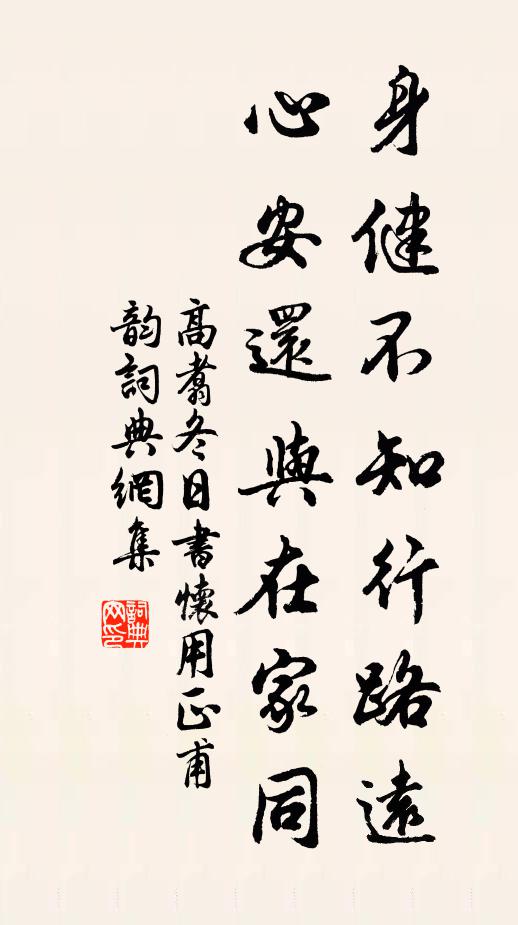 身健不知行路遠
心安還與在家同
高翥冬日書懷用正甫
韵詞典網集
詞典網印